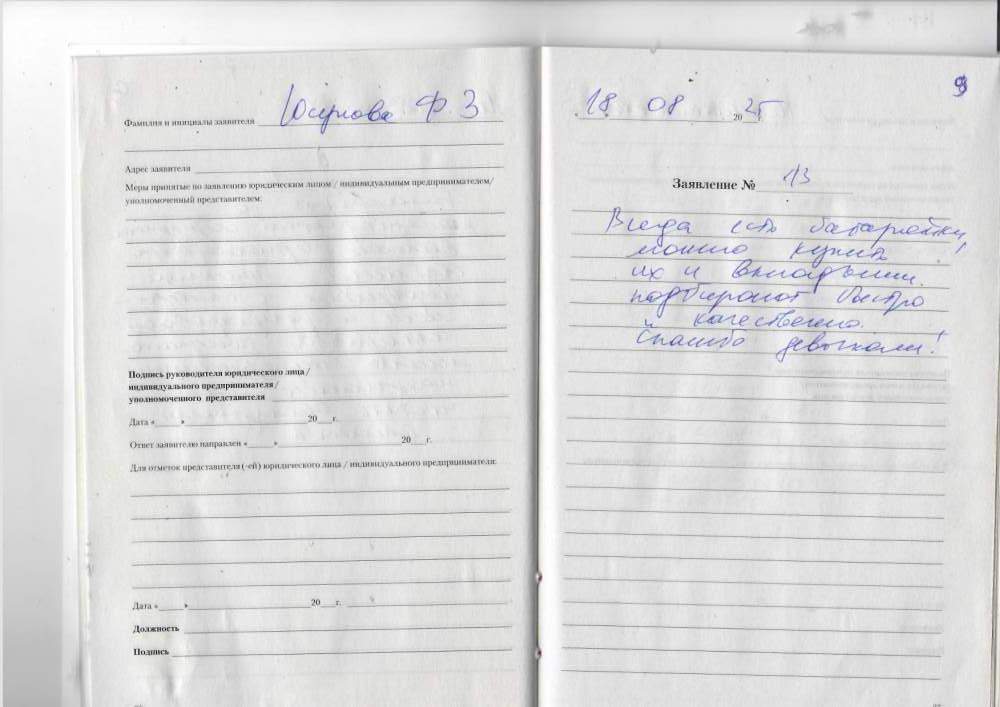 Фамилия и инициалы заявителя Юсупова Ф З
Адрес заявителя
Меры принятые по заявлению юридическим лицом / индивидуальным предпринимателем/
уполномоченный представителем:
Подпись руководителя юридического лица /
индивидуального предпринимателя /
уполномоченного представителя
Дата «      »      20   г.
Ответ заявителю направлен «      »      20   г.
Для отметок представителя (-ей) юридического лица / индивидуального предпринимателя:
Дата «      »      20   г.
Должность
Подпись
9
18 08 2025
Заявление № 13
Всегда есть батарейки,
можно купить
их и вкладыши.
подбирают быстро
и качественно.
Спасибо девочкам!